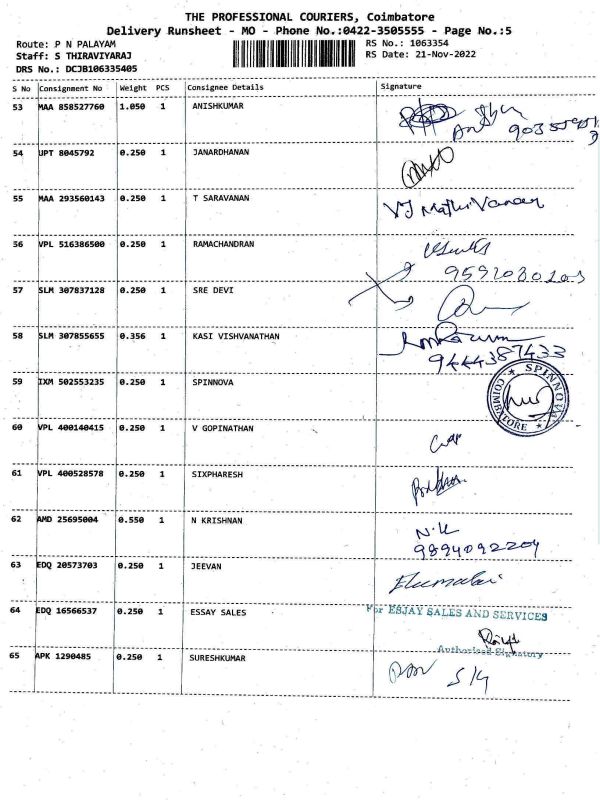 THE PROFESSIONAL COURIERS, Coimbatore
Delivery Runsheet - MO - Phone No.:0422-3505555 - Page No.:5
Route: P N PALAYAM RS No.: 1063354
Staff: S THIRAVIYARAJ RS Date: 21-Nov-2022
DRS No.: DCJB106335405
S No Consignment No Weight PCS Consignee Details Signature
53 MAA 858527760 1.050 1 ANISHKUMAR
54 UPT 8045792 0.250 1 JANARDHANAN
55 MAA 293560143 0.250 1 T SARAVANAN VJ MathiVanan
56 VPL 516386500 0.250 1 RAMACHANDRAN
57 SLM 307837128 0.250 1 SRE DEVI
58 SLM 307855655 0.356 1 KASI VISHVANATHAN
9444387433
59 IXM 502553235 0.250 1 SPINNOVA SPINNOVA COIMBATORE
60 VPL 400140415 0.250 1 V GOPINATHAN
61 VPL 400528578 0.250 1 SIXPHARESH
62 AMD 25695004 0.550 1 N KRISHNAN N.K
9894092204
63 EDQ 20573703 0.250 1 JEEVAN Elumalai
64 EDQ 16566537 0.250 1 ESSAY SALES For ESJAY SALES AND SERVICES
Authorised Signatory
65 APK 1290485 0.250 1 SURESHKUMAR